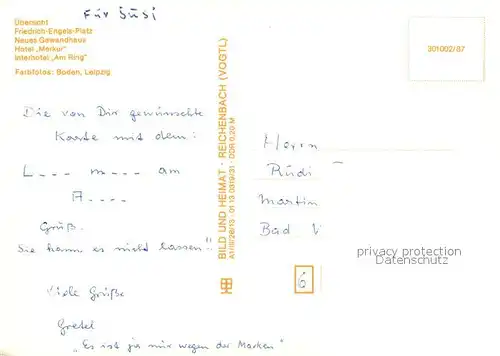 Für Susi
Übersicht
Friedrich-Engels-Platz
Neues Gewandhaus
Hotel „Merkur"
Interhotel „Am Ring"
Farbfotos: Boden, Leipzig
Die von Dir gewünschte
Karte mit dem:
L--- m--- am
A----
Gruß.
Sie kann es nicht lassen!!
Viele Grüße
Gretel
„Es ist ja nur wegen der Marken"
BILD UND HEIMAT · REICHENBACH (VOGTL)
A1/III/26/13 · 01 13 0319/31 · DDR 0,20 M
301002/87
Herrn
Rudi
Martin
Bad
6
privacy protection
Datenschutz